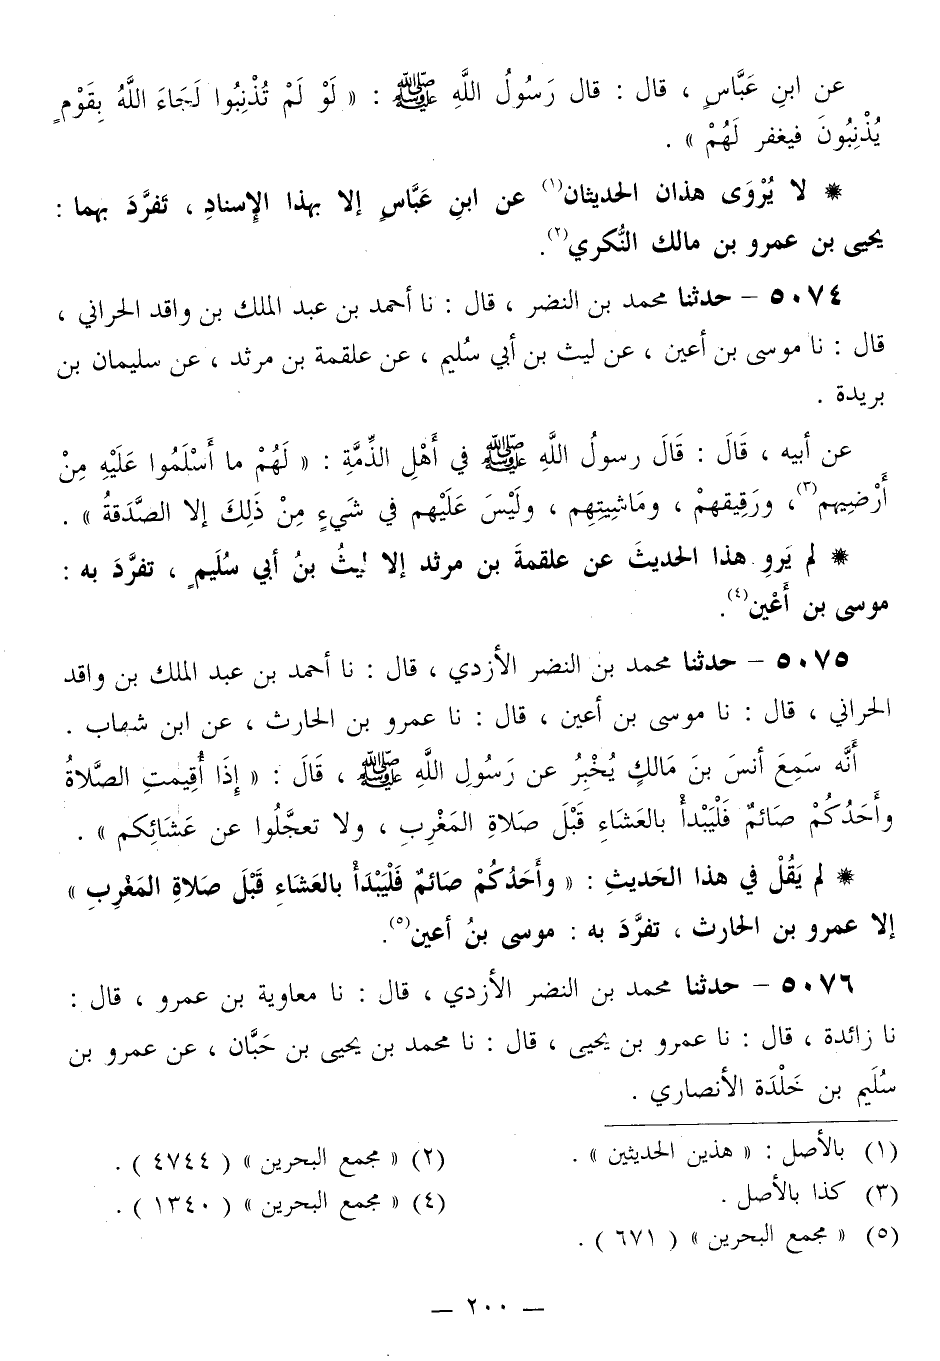 عن ابنِ عَبَّاسٍ ، قال : قال رَسُولُ اللَّهِ ﷺ : « لَوْ لَمْ تُذْنِبُوا لَجَاءَ اللَّهُ بِقَوْمٍ
يُذْنِبُونَ فيغفر لَهُمْ » .
* لا يُرْوَى هذان الحديثان(١) عن ابنِ عَبَّاسٍ إلا بهذا الإِسنادِ ، تَفرَّدَ بهما :
يحيى بن عمرو بن مالك النُّكري(٢).
٥٠٧٤ – حدثنا محمد بن النضر ، قال : نا أحمد بن عبد الملك بن واقد الحراني ،
قال : نا موسى بن أعين ، عن ليث بن أبي سُليم ، عن علقمة بن مرثد ، عن سليمان بن
بريدة .
عن أبيه ، قَالَ : قَالَ رسولُ اللَّهِ ﷺ في أَهْلِ الذِّمَّةِ : « لَهُمْ ما أَسْلَمُوا عَلَيْهِ مِنْ
أَرْضِيهم(٣)، ورَقِيقهمْ ، ومَاشِيتِهِم ، ولَيْسَ عَلَيْهم في شَيءٍ مِنْ ذَلِكَ إلا الصَّدَقةُ » .
* لم يَروِ هذا الحديثَ عن علقمةَ بن مرثد إلا ليثُ بنُ أبي سُلَيمٍ ، تفرَّدَ به :
موسى بن أَعْين(٤).
٥٠٧٥ – حدثنا محمد بن النضر الأزدي ، قال : نا أحمد بن عبد الملك بن واقد
الحراني ، قال : نا موسى بن أعين ، قال : نا عمرو بن الحارث ، عن ابن شهاب .
أَنَّه سَمِعَ أنسَ بنَ مَالكٍ يُخْبِرُ عن رَسُولِ اللَّهِ ﷺ ، قَالَ : « إِذَا أُقِيمتِ الصَّلاةُ
وأَحَدُكُمْ صَائمٌ فَلْيَبْدأْ بالعَشَاءِ قَبْلَ صَلاةِ المَغْرِبِ ، ولا تعجَّلُوا عن عَشَائِكم » .
* لم يَقُلْ في هذا الحَديثِ : « وأَحَدُكُمْ صائمٌ فَلْيَبْدَأْ بالعَشَاءِ قَبْلَ صَلاةِ المَغْرِبِ »
إلا عمرو بن الحارث ، تفرَّدَ به : موسى بنُ أعين(٥).
٥٠٧٦ – حدثنا محمد بن النضر الأزدي ، قال : نا معاوية بن عمرو ، قال :
نا زائدة ، قال : نا عمرو بن يحيى ، قال : نا محمد بن يحيى بن حَبَّان ، عن عمرو بن
سُلَيم بن خَلْدَة الأنصاري .
(١) بالأصل : « هذين الحديثين » .
(٢) « مجمع البحرين » ( ٤٧٤٤ ) .
(٣) كذا بالأصل .
(٤) « مجمع البحرين » ( ١٣٤٠ ) .
(٥) « مجمع البحرين » ( ٦٧١ ) .
— ٢٠٠ —